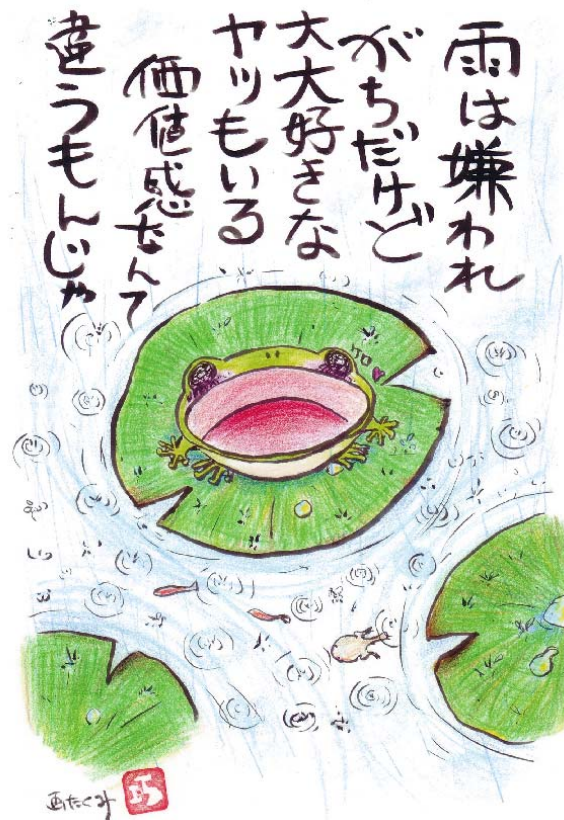 雨は嫌われ
がちだけど
大大好きな
ヤツもいる
価値感なんて
違うもんじゃ
画たくみ
巧